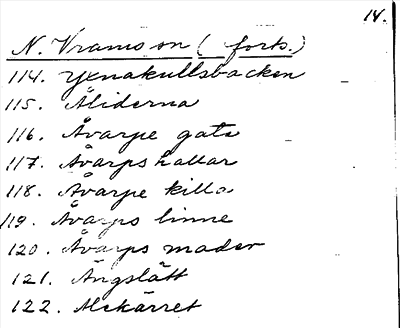 14.
N. Vramsson (forts.)
114. Yxnakullsbacken
115. Åliderna
116. Åvarpe gata
117. Åvarps hallar
118. Åvarpe killa
119. Åvarps linne
120. Åvarps mader
121. Ängslätt
122. Alekärret